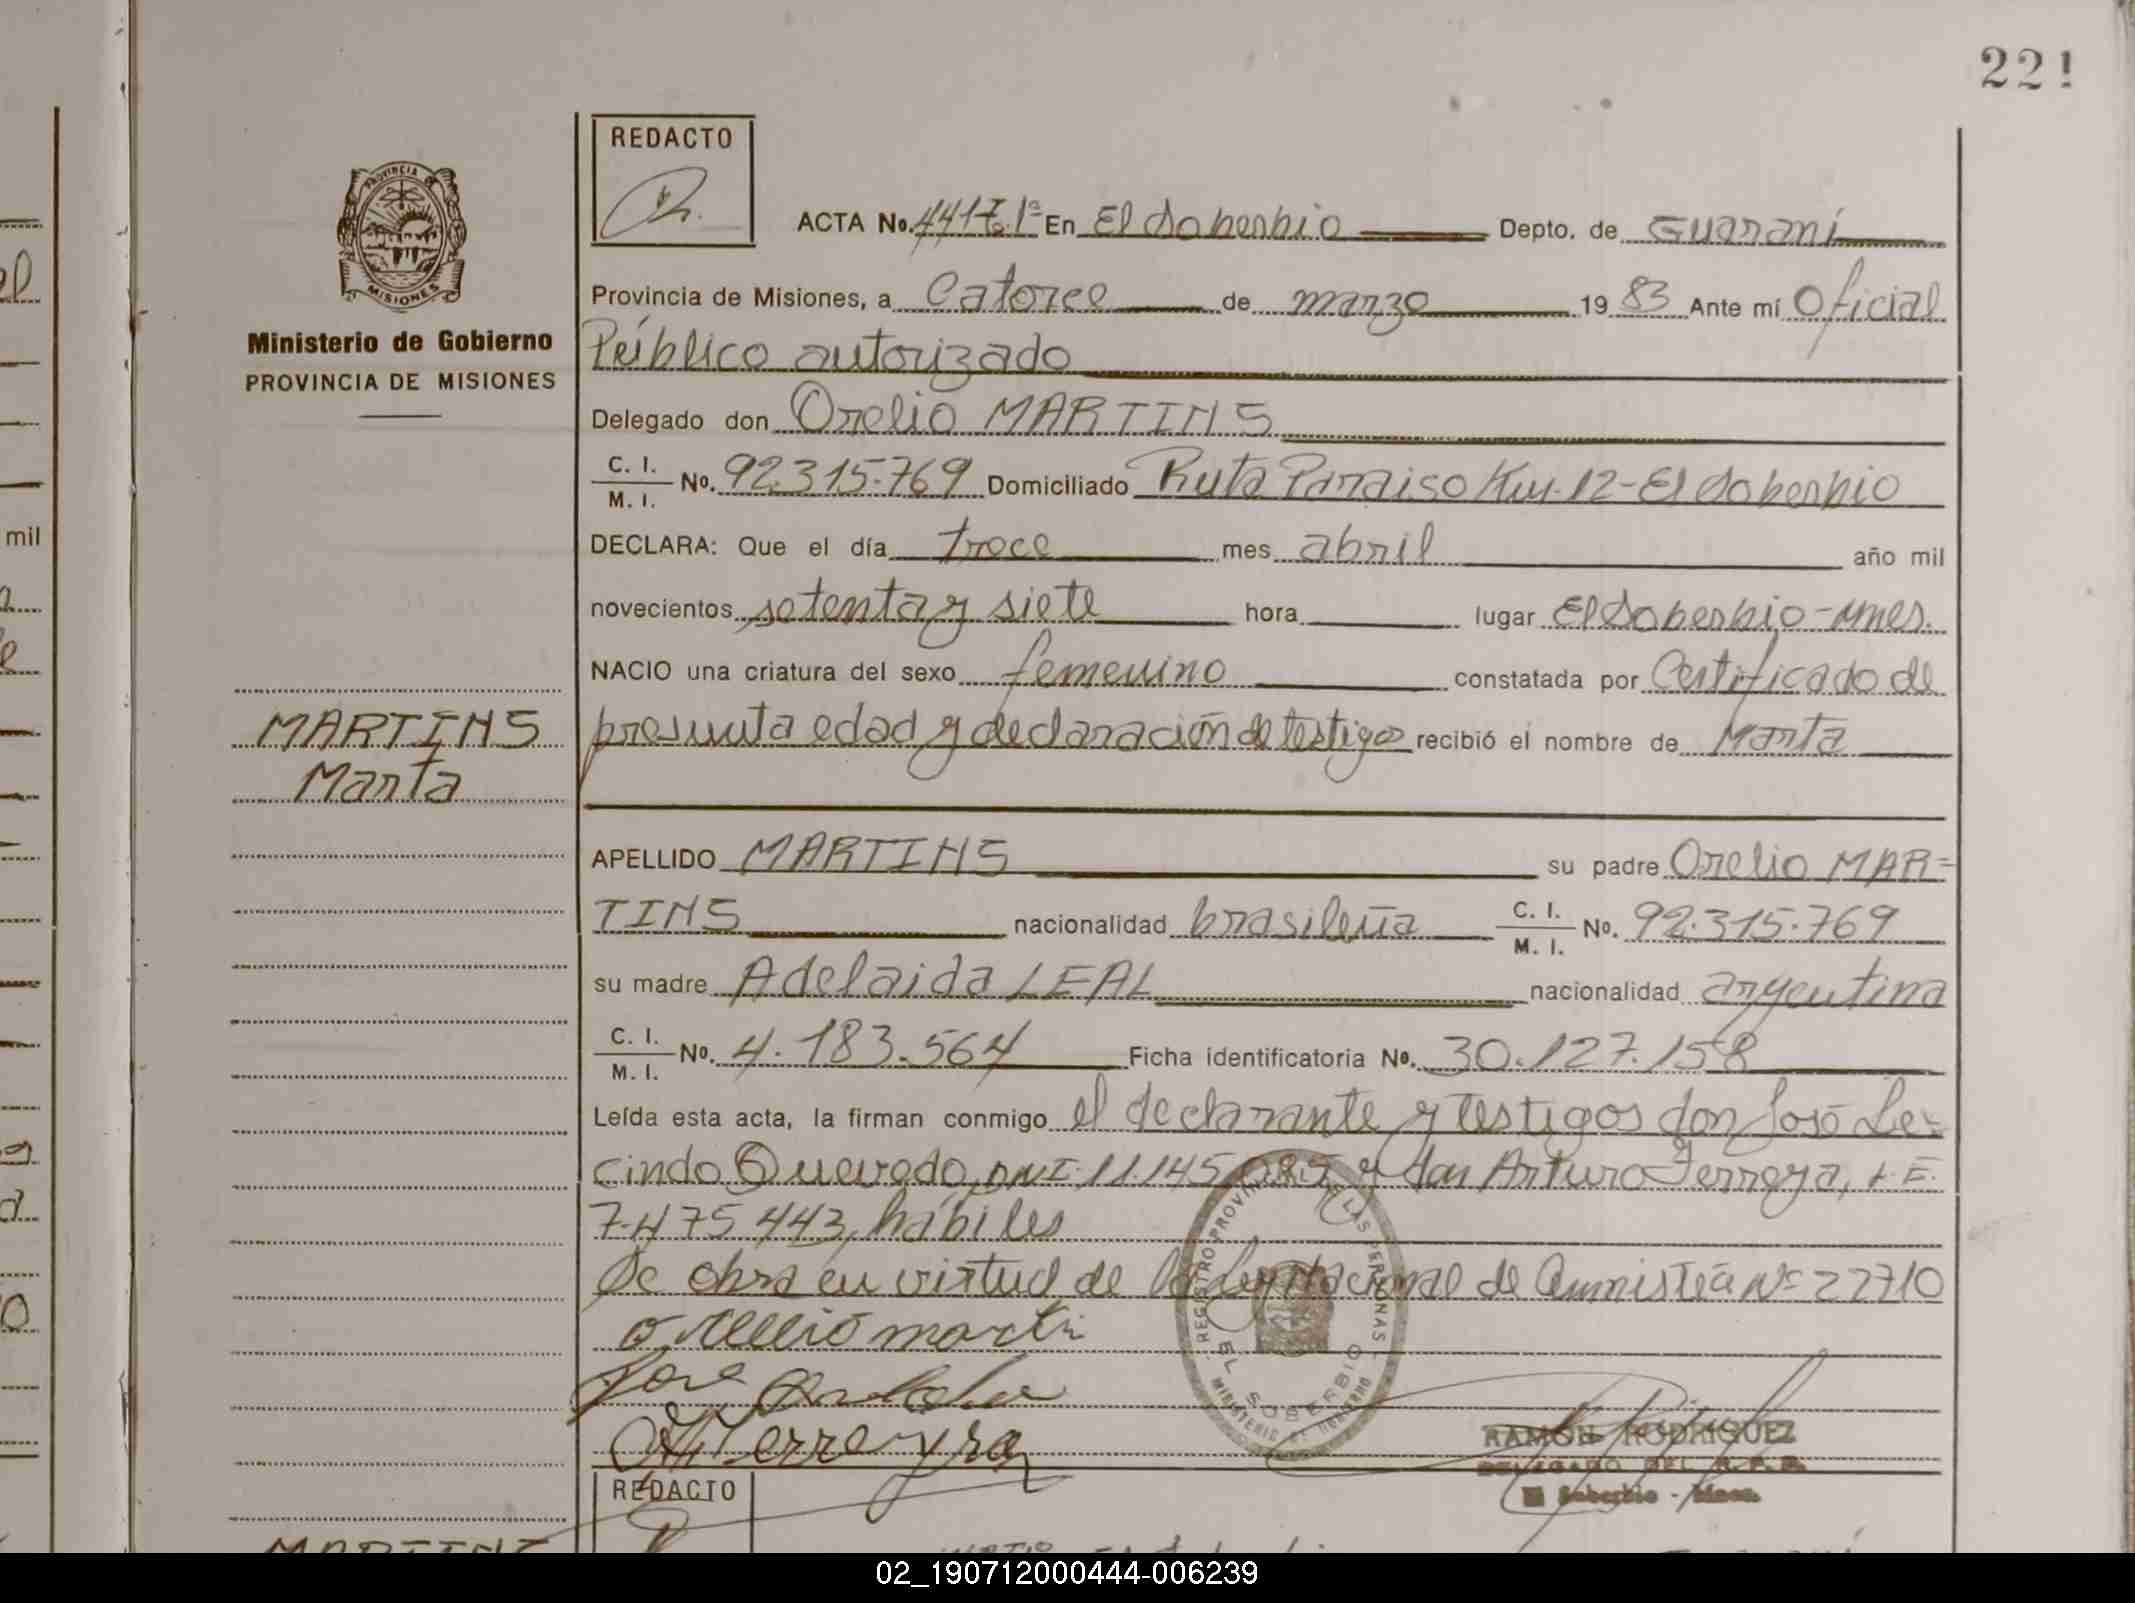 221
REDACTO
ACTA No. 4417. 1ª En El Soberbio Depto. de Guaraní
PROVINCIA DE MISIONES
Provincia de Misiones, a Catorce de marzo 1983 Ante mí Oficial
Ministerio de Gobierno
PROVINCIA DE MISIONES
Público autorizado
Delegado don Orelio MARTINS
C. I. / M. I. No. 92.315.769 Domiciliado Ruta Paraiso Km. 12-El Soberbio
DECLARA: Que el día trece mes abril año mil
novecientos setenta y siete hora lugar El Soberbio-Mnes.
NACIO una criatura del sexo femenino constatada por Certificado de
MARTINS
Marta
presunta edad y declaración de testigos recibió el nombre de Marta
APELLIDO MARTINS su padre Orelio MAR=
TINS nacionalidad brasileña C. I. / M. I. No. 92.315.769
su madre Adelaida LEAL nacionalidad argentina
C. I. / M. I. No. 4.183.564 Ficha identificatoria No. 30.127.158
Leída esta acta, la firman conmigo el declarante y testigos don José Le=
cindo Quevedo, DNI. 11.145.085 y don Arturo Ferreyra, L.E.
7.475.443, hábiles
Se obra en virtud de la Ley Nacional de Amnistía Nº 22710
José
A Ferreyra
REGISTRO PROVINCIAL DE LAS PERSONAS
EL SOBERBIO
MINISTERIO DE GOBIERNO
RAMON RODRIGUEZ
DELEGADO DEL R.P.P.
El Soberbio - Mnes.
REDACTO
MARTINS
mil
02_190712000444-006239